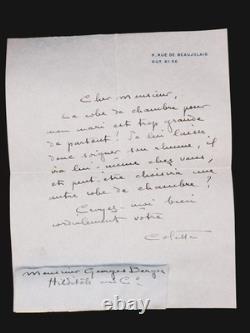 9, RUE DE BEAUJOLAIS
GUT. 81.56
Cher Monsieur,
La robe de chambre pour
mon mari est trop grande
de partout ! Je lui laisse
donc soigner son rhume, il
ira lui-même chez vous,
et peut-être choisira une
autre robe de chambre !
Croyez-moi bien
cordialement vôtre
Colette
Monsieur Georges
et Cie